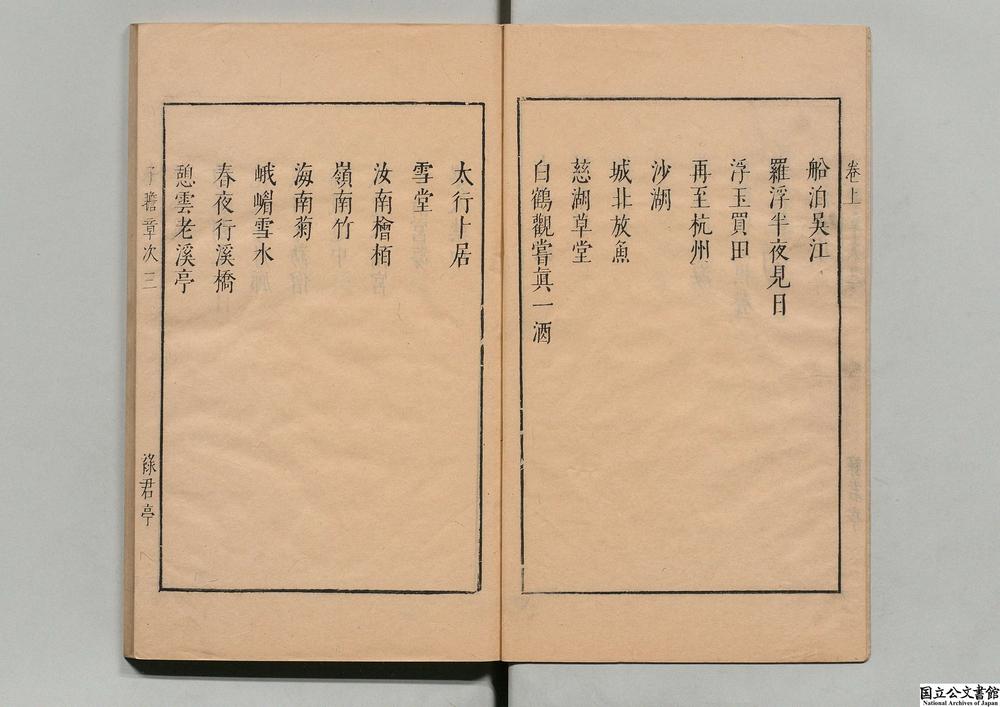 卷上
船泊吳江
羅浮半夜見日
浮玉買田
再至杭州
沙湖
城北放魚
慈湖草堂
白鶴觀嘗眞一酒
太行卜居
雪堂
汝南檜栢
嶺南竹
海南菊
峨嵋雪水
春夜行溪橋
憩雲老溪亭
子瞻章次 三
綠君亭
国立公文書館
National Archives of Japan